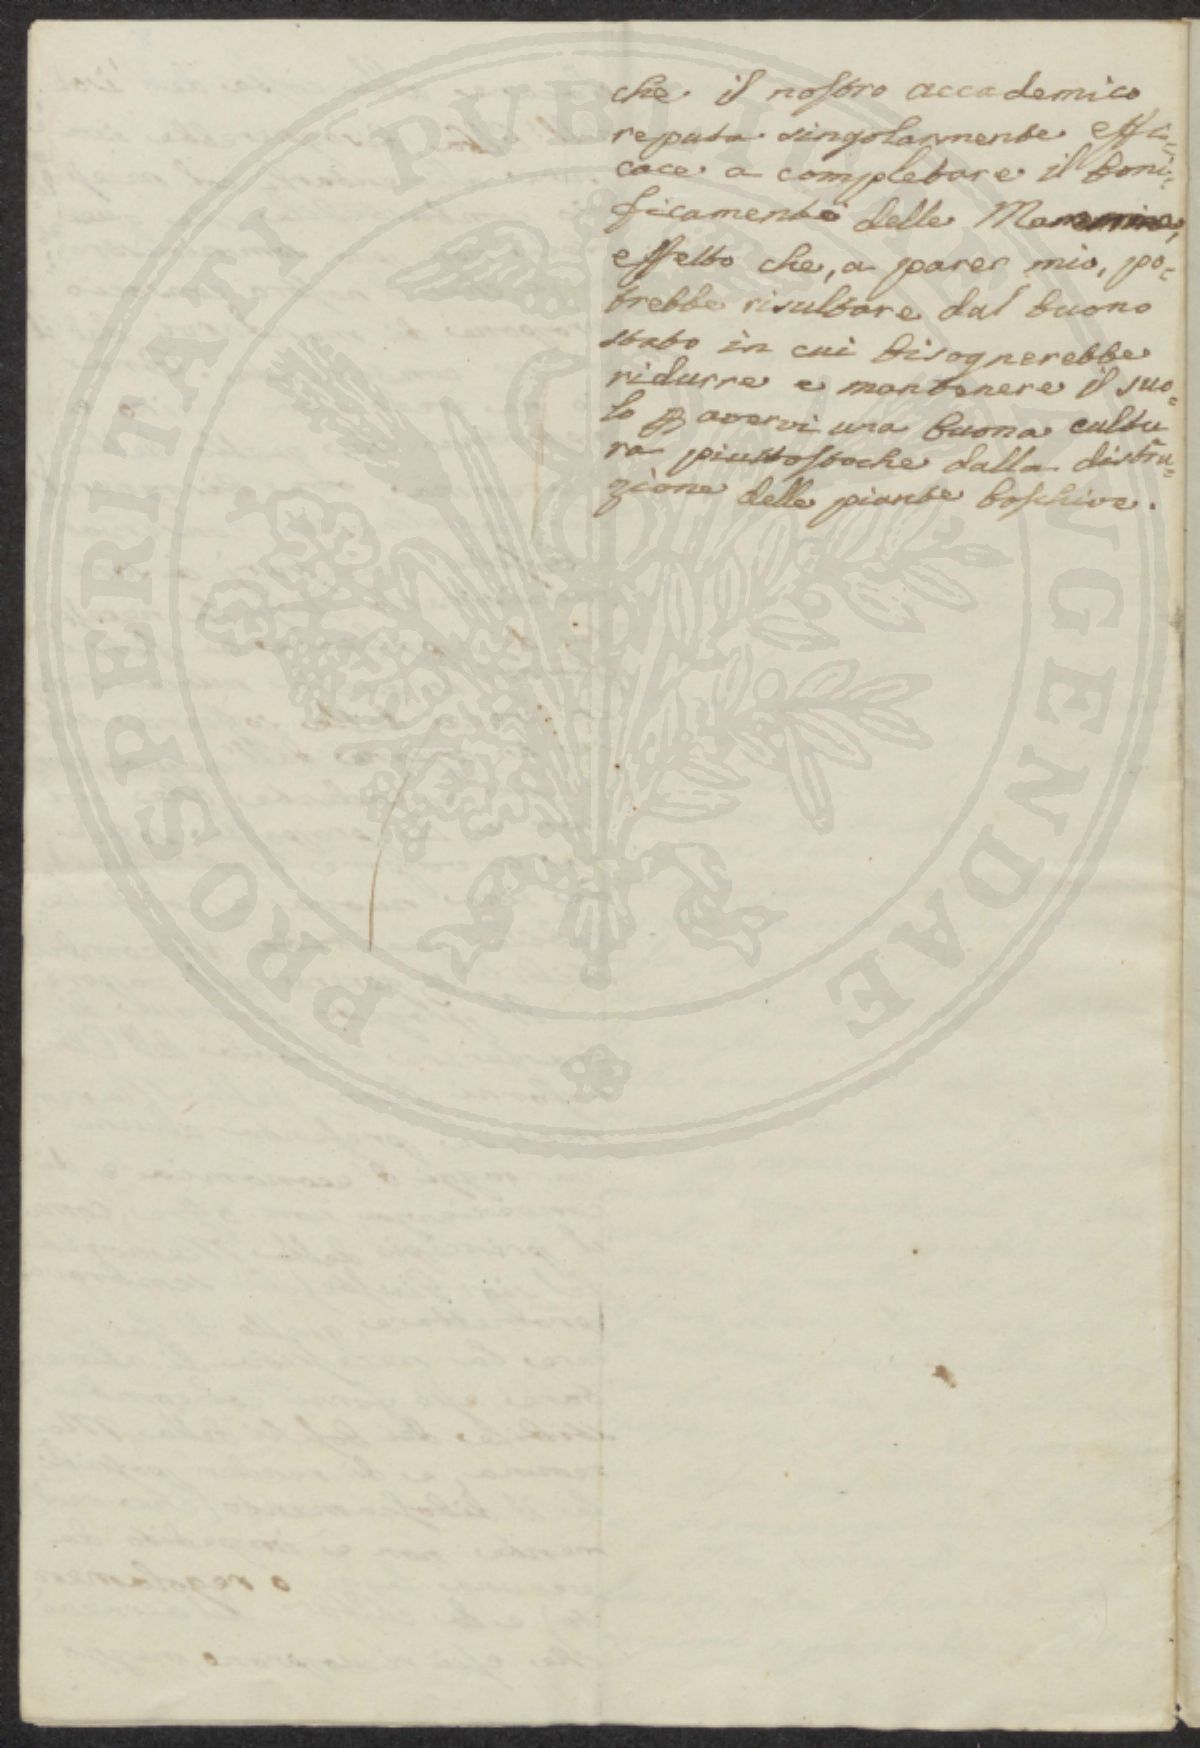 che il nostro accademico
reputa singolarmente effi-
cace a completare il boni-
ficamento delle Maremme,
effetto che, a parer mio, po-
trebbe risultare dal buono
stato in cui bisognerebbe
ridurre e mantenere il suo-
lo p avervi una buona cultu
ra piuttostoche dalla distru-
zione delle piante boschive.
PROSPERITATI PUBLICAE AUGENDAE